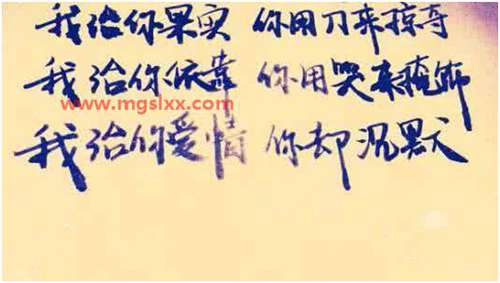 我给你果实 你用刀来掠夺
我给你依靠 你用哭来掩饰
www.mgslxx.com
我给你爱情 你却沉默